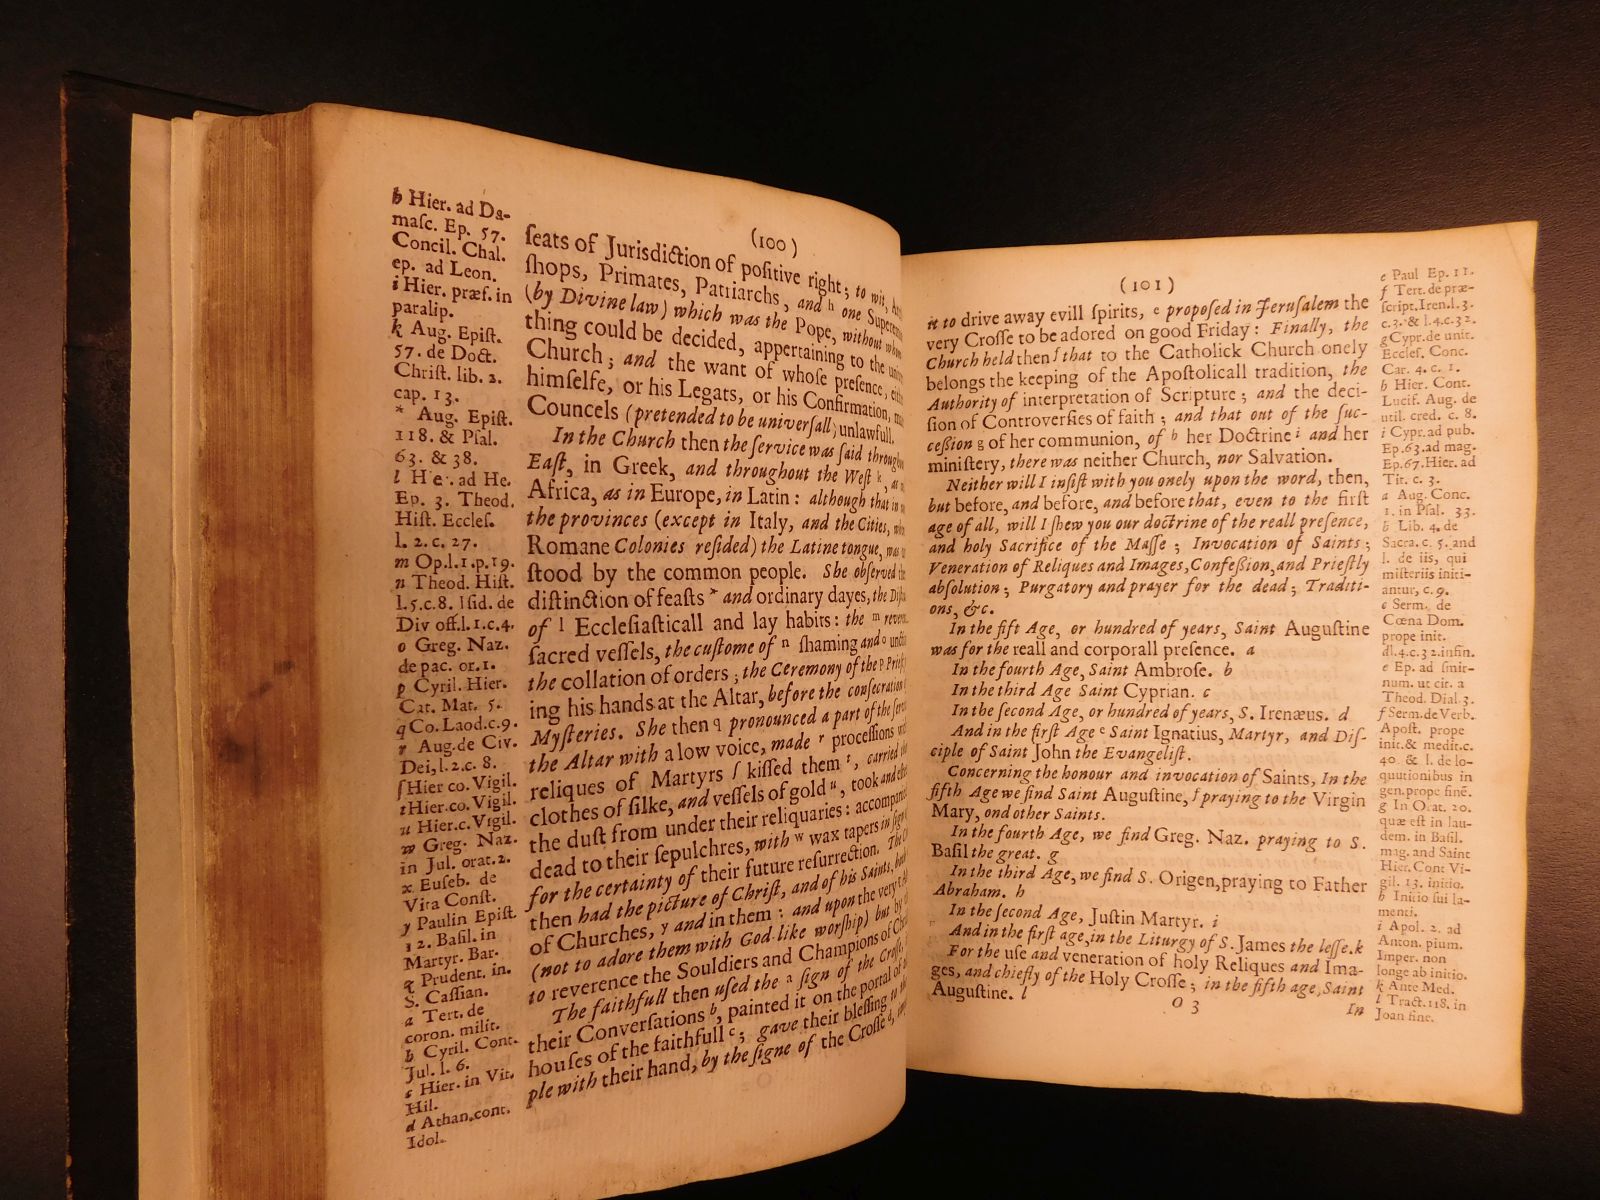 (100)
ſeats of Jurisdiction of poſitive right; to wit,
ſhops, Primates, Patriarchs, and h one Supereme
(by Divine law) which was the Pope, without whom
thing could be decided, appertaining to the
Church; and the want of whose preſence,
himſelfe, or his Legats, or his Confirmation,
Councels (pretended to be univerſall) unlawfull.
In the Church then the ſervice was ſaid
Eaſt, in Greek, and throughout the Weſt k,
Africa, as in Europe, in Latin: although that in
the provinces (except in Italy, and the Cities,
Romane Colonies reſided) the Latine tongue, was
ſtood by the common people. She obſerved
diſtinction of feaſts * and ordinary dayes, the
of l Eccleſiaſticall and lay habits: the m
ſacred veſſels, the cuſtome of n ſhaming and o
the collation of orders; the Ceremony of the p
ing his hands at the Altar, before the conſecration
Myſteries. She then q pronounced a part of the
the Altar with a low voice, made r proceſſions
reliques of Martyrs ſ kiſſed them t, carried
clothes of ſilke, and veſſels of gold u, took and
the duſt from under their reliquaries:
dead to their ſepulchres, with w wax tapers in
for the certainty of their future reſurrection. The
then had the picture of Chriſt, and of his Saints,
of Churches, y and in them: and upon the very
(not to adore them with God-like worſhip) but by
to reverence the Souldiers and Champions of
The faithfull then uſed the a ſign of the Croſſe,
their Converſations b, painted it on the portal of
houſes of the faithfull c; gave their bleſſing to
ple with their hand, by the ſigne of the Croſſe d,
b Hier. ad Da-
maſc. Ep. 57.
Concil. Chal.
ep. ad Leon.
i Hier. præf. in
paralip.
k Aug. Epiſt.
57. de Doct.
Chriſt. lib. 2.
cap. 13.
* Aug. Epiſt.
118. & Pſal.
63. & 38.
l He. ad He.
Ep. 3. Theod.
Hiſt. Eccleſ.
l. 2. c. 27.
m Op. l. 1. p. 19.
n Theod. Hiſt.
l. 5. c. 8. Iſid. de
Div off. l. 1. c. 4.
o Greg. Naz.
de pac. or. 1.
p Cyril. Hier.
Cat. Mat. 5.
q Co. Laod. c. 9.
r Aug. de Civ.
Dei, l. 2. c. 8.
ſ Hier co. Vigil.
t Hier. co. Vigil.
u Hier. c. Vigil.
w Greg. Naz.
in Jul. orat. 2.
x Euſeb. de
Vita Conſt.
y Paulin Epiſt.
12. Baſil. in
Martyr. Bar.
q Prudent. in.
S. Caſſian.
a Tert. de
coron. milit.
b Cyril. Cont.
Jul. l. 6.
c Hier. in Vit.
Hil.
d Athan. cont.
Idol.
(101)
it to drive away evill ſpirits, e propoſed in Jeruſalem the
very Croſſe to be adored on good Friday: Finally, the
Church held then f that to the Catholick Church onely
belongs the keeping of the Apoſtolicall tradition, the
Authority of interpretation of Scripture; and the deci-
ſion of Controverſies of faith; and that out of the ſuc-
ceſſion g of her communion, of h her Doctrine i and her
miniſtery, there was neither Church, nor Salvation.
Neither will I inſiſt with you onely upon the word, then,
but before, and before, and before that, even to the firſt
age of all, will I ſhew you our doctrine of the reall preſence,
and holy Sacrifice of the Maſſe; Invocation of Saints;
Veneration of Reliques and Images, Confeſſion, and Prieſtly
abſolution; Purgatory and prayer for the dead; Traditi-
ons, &c.
In the fift Age, or hundred of years, Saint Auguſtine
was for the reall and corporall preſence. a
In the fourth Age, Saint Ambroſe. b
In the third Age Saint Cyprian. c
In the ſecond Age, or hundred of years, S. Irenæus. d
And in the firſt Age e Saint Ignatius, Martyr, and Diſ-
ciple of Saint John the Evangeliſt.
Concerning the honour and invocation of Saints, In the
fifth Age we find Saint Auguſtine, f praying to the Virgin
Mary, and other Saints.
In the fourth Age, we find Greg. Naz. praying to S.
Baſil the great. g
In the third Age, we find S. Origen, praying to Father
Abraham. h
In the ſecond Age, Juſtin Martyr. i
And in the firſt age, in the Liturgy of S. James the leſſe. k
For the uſe and veneration of holy Reliques and Ima-
ges, and chiefly of the Holy Croſſe; in the fifth age, Saint
Auguſtine. l
O 3
In
e Paul Ep. 11.
f Tert. de præ-
ſcript. Iren. l. 3.
c. 3. & l. 4. c. 32.
g Cypr. de unit.
Eccleſ. Conc.
Car. 4. c. 1.
h Hier. Cont.
Lucif. Aug. de
util. cred. c. 8.
i Cypr. ad pub.
Ep. 63. ad mag.
Ep. 67. Hier. ad
Tit. c. 3.
a Aug. Conc.
1. in Pſal. 33.
b Lib. 4. de
Sacra. c. 5. and
l. de iis, qui
miſteriis initi-
antur, c. 9.
c Serm. de
Cœna Dom.
prope init.
d l. 4. c. 32. infin.
e Ep ad ſmir-
num. ut cit. a
Theod. Dial. 3.
f Serm. de Verb.
Apoſt. prope
init. & medit. c.
40. & l. de lo-
quutionibus in
gen. prope finē.
g In Orat. 20.
quæ eſt in lau-
dem. in Baſil.
mag. and Saint
Hier. Cont Vi-
gil. 13. initio.
h Initio ſui la-
menti.
i Apol. 2. ad
Anton. pium.
Imper. non
longe ab initio.
k Ante Med.
l Tract. 118. in
Joan fine.